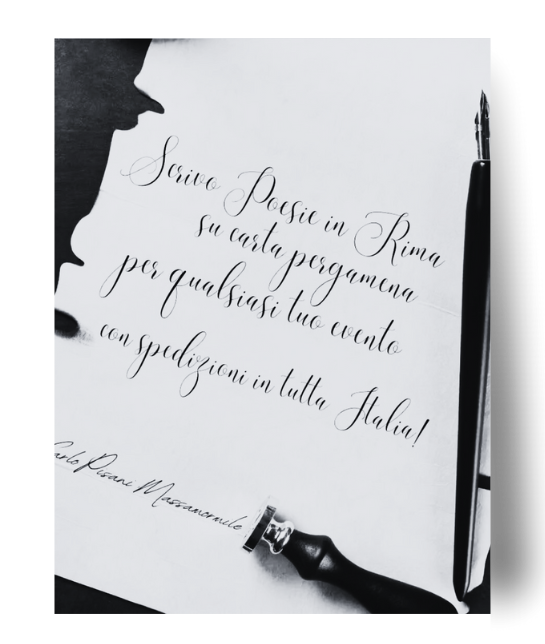 Scrivo Poesie in Rima
su carta pergamena
per qualsiasi tuo evento
con spedizioni in tutta Italia!
Carlo Pisani Massamormile